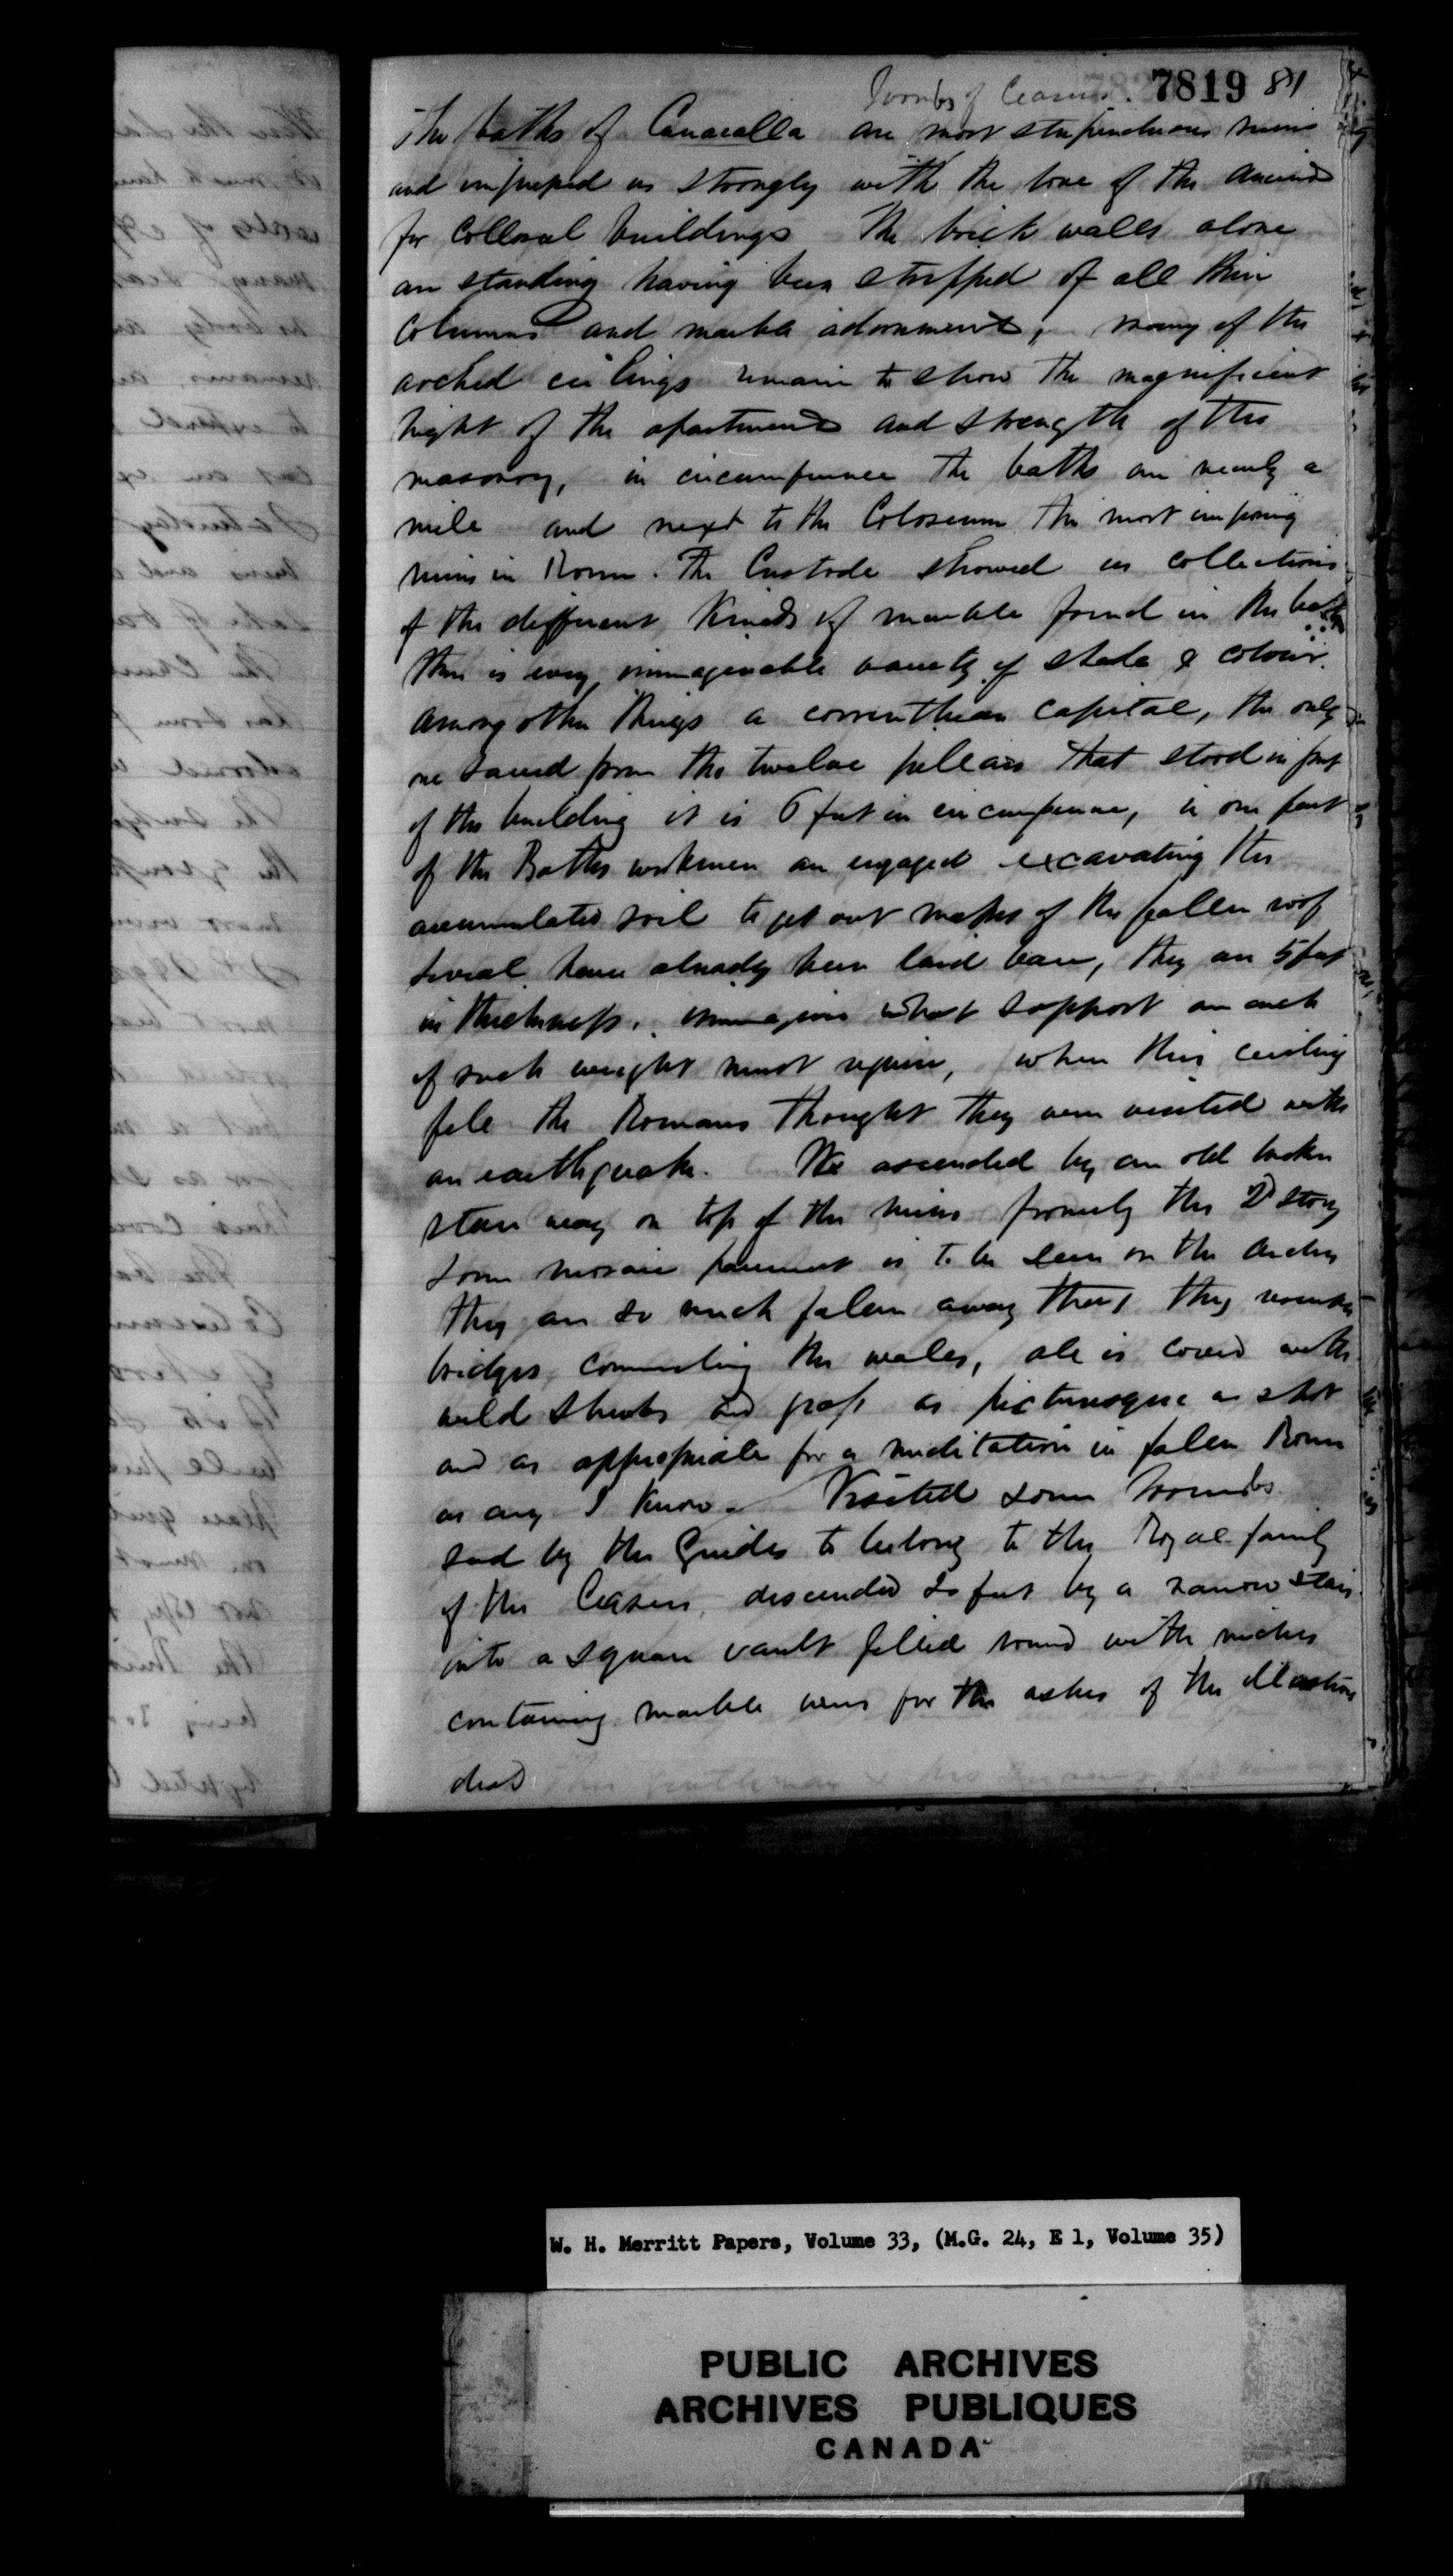 Toombs of Ceasers. 7819 81
The baths of Caracalla are most stupenduous ruins
and impressed us strongly with the love of the Ancients
for Collosal buildings The brick walls alone
are standing having been stripped of all their
Columns and marble adornments, many of the
arched ceilings remain to show the magnificient
hight of the apartments and strength of the
masonry, in circumference the baths are nearly a
mile and next to the Coloseum the most imposing
ruins in Rome. The Custode showed us collections
of the different kinds of marble found in the baths
there is every immagenable variety of shade & colour.
Among other things a correnthean Capital, the only
one saved from the twelve pillars that stood in front
of the building it is 6 feet in circumference, in one part
of the Baths workmen are engaged excavating the
accumulated soil to get out masses of the fallen roof
several have already been laid bare, they are 5 feet
in thickness. immagine what support an arch
of such weight must require, when this ceiling
fell the Romans thought they were visited with
an earthquake. We ascended by an old broken
stair way on top of the ruins formerly the 2d Story
some mosaic pavement is to be seen on the Arches
they are so much falen away that they resemble
bridges connecting the walls, all is covered with
wild shrubs and grass as picturesque a spot
and as appropriate for a meditation in falen Rome
as any I know. Visited some toombs
said by the Guides to belong to the Royal family
of the Ceasers, descended 20 feet by a narrow stair
into a square vault filled round with niches
containing marble urns for the ashes of the illustrious
dead
W. H. Merritt Papers, Volume 33, (M.G. 24, E 1, Volume 35)
PUBLIC ARCHIVES
ARCHIVES PUBLIQUES
CANADA